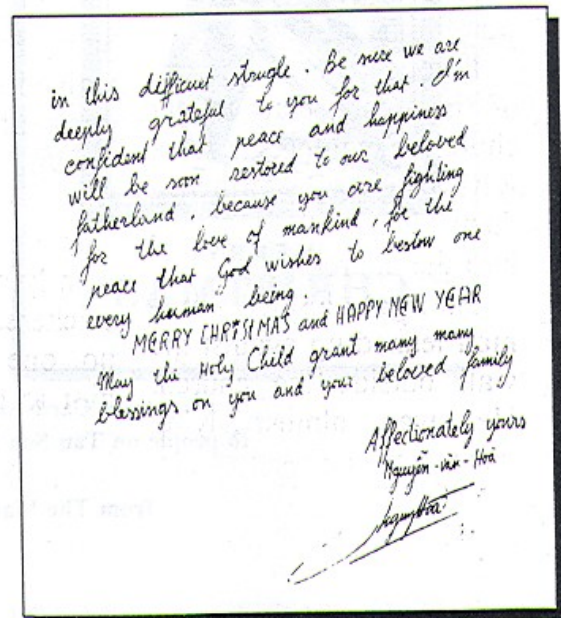 in this difficult strugle. Be sure we are
deeply grateful to you for that. I'm
confident that peace and happiness
will be soon restored to our beloved
fatherland, because you are fighting
for the love of mankind, for the
peace that God wishes to bestow one
every human being.
MERRY CHRISTMAS and HAPPY NEW YEAR
May the Holy Child grant many many
blessings on you and your beloved family
Affectionately yours
Nguyễn-văn-Hoà